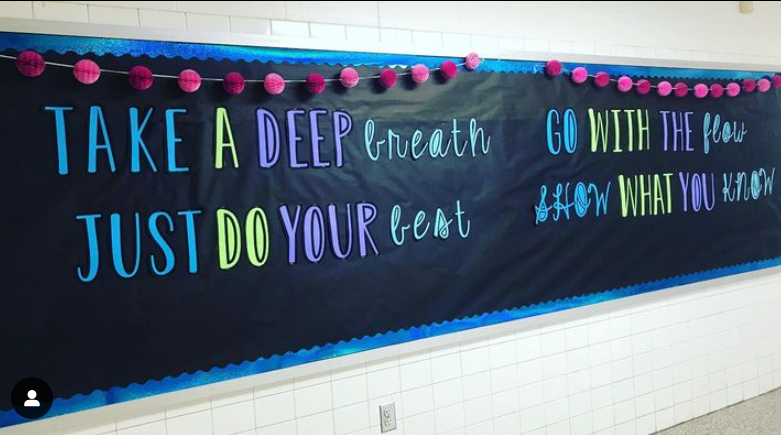 TAKE A DEEP breath
JUST DO YOUR best
GO WITH THE flow
SHOW WHAT YOU KNOW